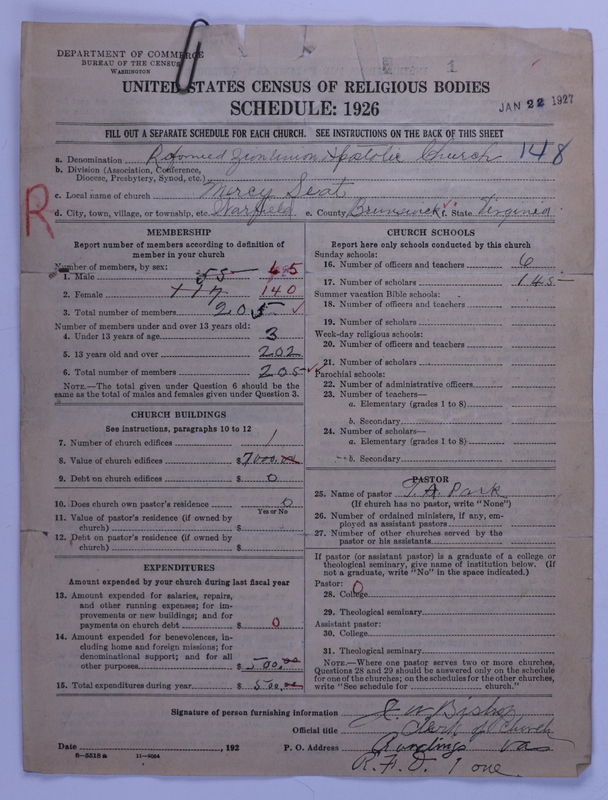 1
DEPARTMENT OF COMMERCE
BUREAU OF THE CENSUS
WASHINGTON
UNITED STATES CENSUS OF RELIGIOUS BODIES
SCHEDULE: 1926
JAN 22 1927
FILL OUT A SEPARATE SCHEDULE FOR EACH CHURCH. SEE INSTRUCTIONS ON THE BACK OF THIS SHEET
a. Denomination Apostolic Church 148
b. Division (Association, Conference,
Diocese, Presbytery, Synod, etc.)
c. Local name of church Mercy Seat
R
d. City, town, village, or township, etc. Warfield e. County Brunswick f. State Virginia
MEMBERSHIP
Report number of members according to definition of
member in your church
Number of members, by sex:
1. Male 55 65
2. Female 140
3. Total number of members 205
Number of members under and over 13 years old:
4. Under 13 years of age 3
5. 13 years old and over 202
6. Total number of members 205
NOTE.—The total given under Question 6 should be the
same as the total of males and females given under Question 3.
CHURCH BUILDINGS
See instructions, paragraphs 10 to 12
7. Number of church edifices 1
8. Value of church edifices $7000.00
9. Debt on church edifices $ 0
10. Does church own pastor's residence 0
Yes or No
11. Value of pastor's residence (if owned by
church) $
12. Debt on pastor's residence (if owned by
church) $
EXPENDITURES
Amount expended by your church during last fiscal year
13. Amount expended for salaries, repairs,
and other running expenses; for im-
provements or new buildings; and for
payments on church debt $ 0
14. Amount expended for benevolences, in-
cluding home and foreign missions; for
denominational support; and for all
other purposes $ 500.00
15. Total expenditures during year $ 500.00
CHURCH SCHOOLS
Report here only schools conducted by this church
Sunday schools:
16. Number of officers and teachers 6
17. Number of scholars 145
Summer vacation Bible schools:
18. Number of officers and teachers
19. Number of scholars
Week-day religious schools:
20. Number of officers and teachers
21. Number of scholars
Parochial schools:
22. Number of administrative officers
23. Number of teachers—
a. Elementary (grades 1 to 8)
b. Secondary
24. Number of scholars—
a. Elementary (grades 1 to 8)
b. Secondary
PASTOR
25. Name of pastor T. A. Park
(If church has no pastor, write "None")
26. Number of ordained ministers, if any, em-
ployed as assistant pastors
27. Number of other churches served by the
pastor or his assistants
If pastor (or assistant pastor) is a graduate of a college or
theological seminary, give name of institution below. (If
not a graduate, write "No" in the space indicated.)
Pastor:
28. College 0
29. Theological seminary
Assistant pastor:
30. College
31. Theological seminary
NOTE.—Where one pastor serves two or more churches,
Questions 28 and 29 should be answered only on the schedule
for one of the churches; on the schedules for the other churches,
write "See schedule for church."
Signature of person furnishing information Bishop
Official title Clerk of Church
Date , 192 P. O. Address Va
8-5518a 11-9034
R.F.D. 1 one.